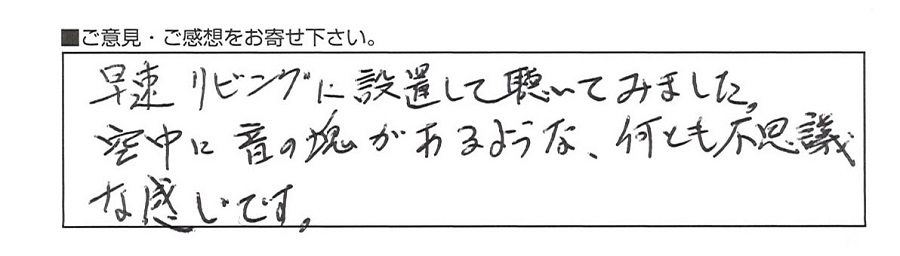 ■ご意見・ご感想をお寄せ下さい。
早速リビングに設置して聴いてみました。
空中に音の塊があるような、何とも不思議
な感じです。